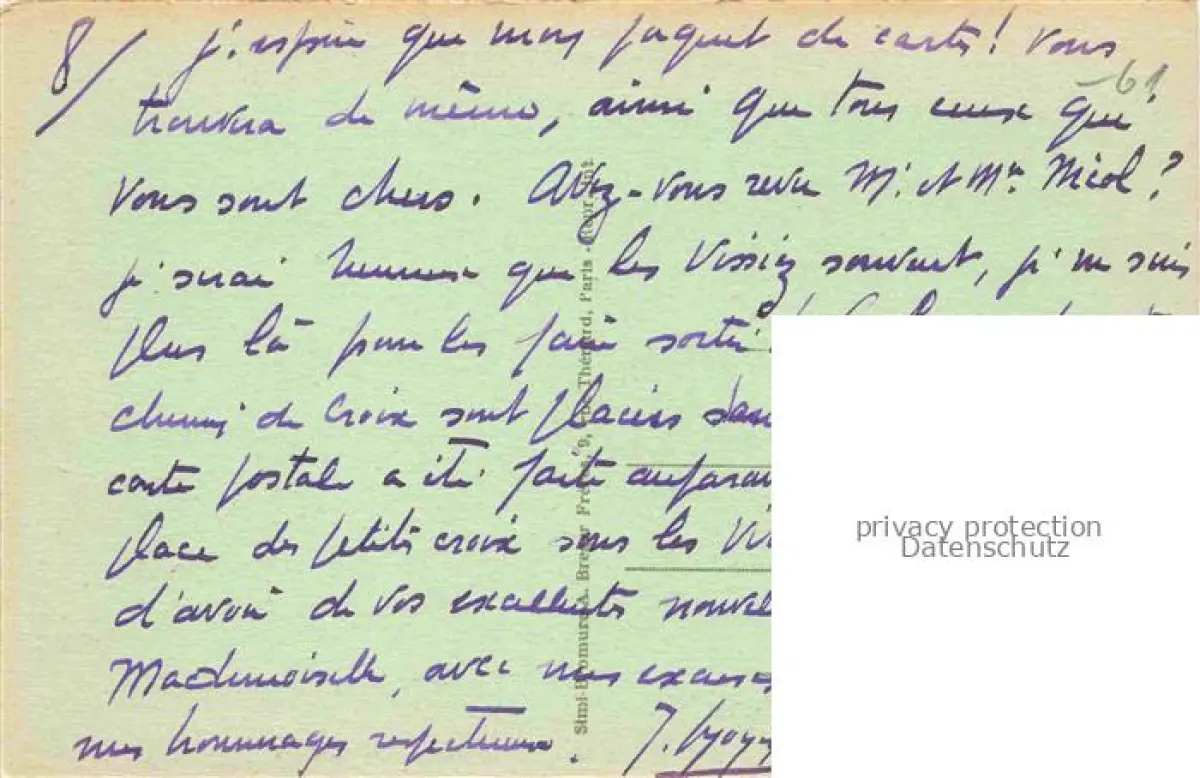 8/ j'espère que mon paquet de carte! vous
-61
trouvera de même, ainsi que tous ceux qui
vous sont chers. Avez-vous revu Mr. et Mme Nicol?
j'serai heureuse que les Vissiez souvent, j'ne suis
plus là pour les faire sortir!
chemin de Croix sont placées dans
carte postale a été faite auparav
place des petites croix sous les Vi
d'avoir de vos excellentes nouvel
Mademoiselle, avec mes excuses
mes hommages respectueux. J.
Simi-Bromure A. Breger Frères, 9, Rue Thénard, Paris -
privacy protection
Datenschutz